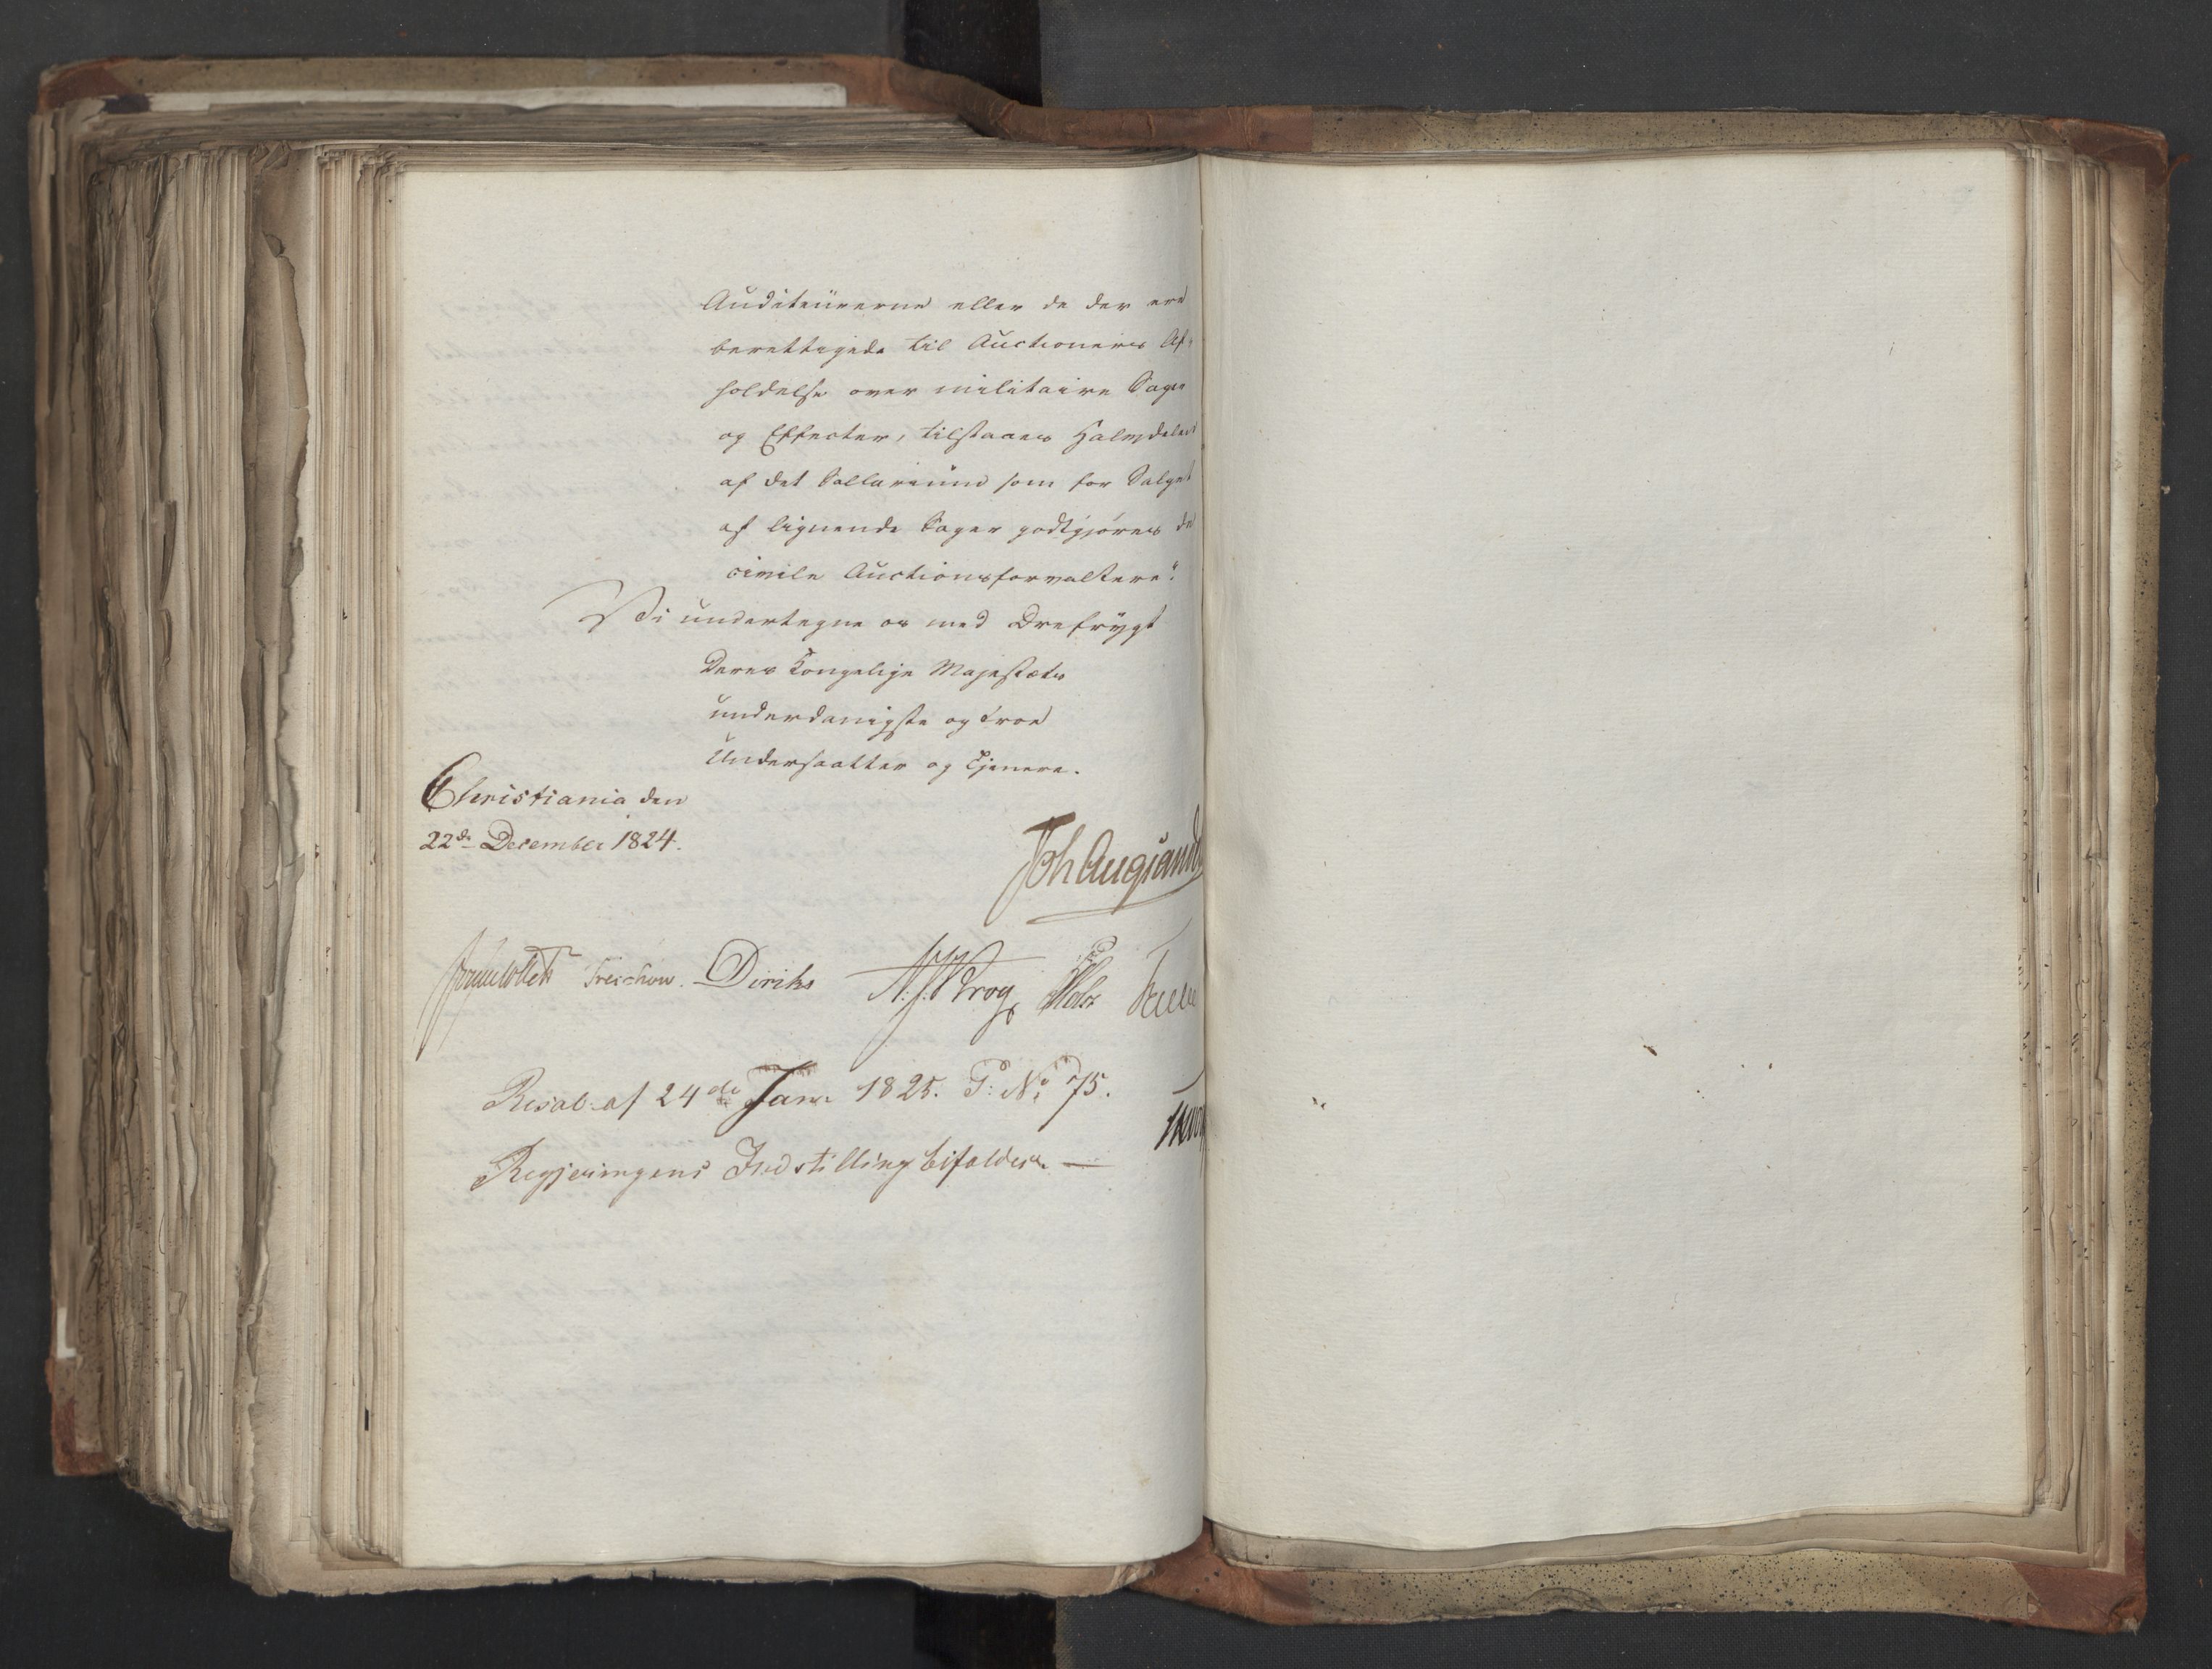 Auditeürerne eller de der ere
berettigede til Auctioners Af-
holdelse over militaire Sager
og Effecter, tilstaaes Halvdelen
af det Sallarium som for Salget
af lignende Sager godtgjøres de
civile Auctionsforvaltere".
Vi undertegne os med Ærefrygt
Deres Kongelige Majestæts
underdanigste og troe
Undersaatter og Tjenere.
Christiania den
22de December 1824.
Joh Aug Sand
Sommerfeldt Treschow. Diriks N: J: Krog Holst
Resol: af 24de Janr 1825. P: No 75.
Regjeringens Indstilling bifaldes. —